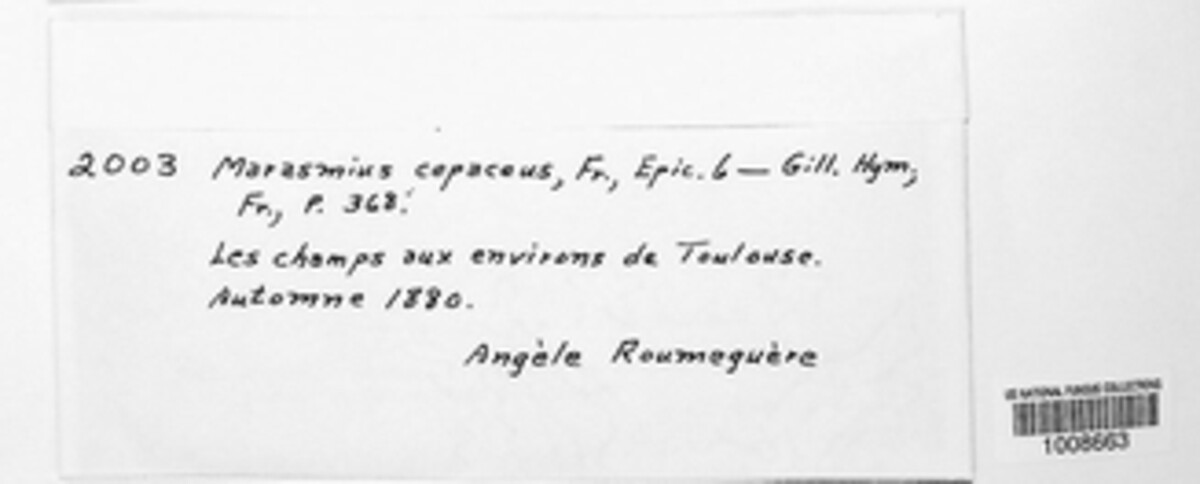 2003 Marasmius cepaceus, Fr., Epic. 6 — Gill. Hym,
Fr., P. 368.
Les champs aux environs de Toulouse.
Automne 1880.
Angèle Roumeguère
US NATIONAL FUNGUS COLLECTIONS
1008663